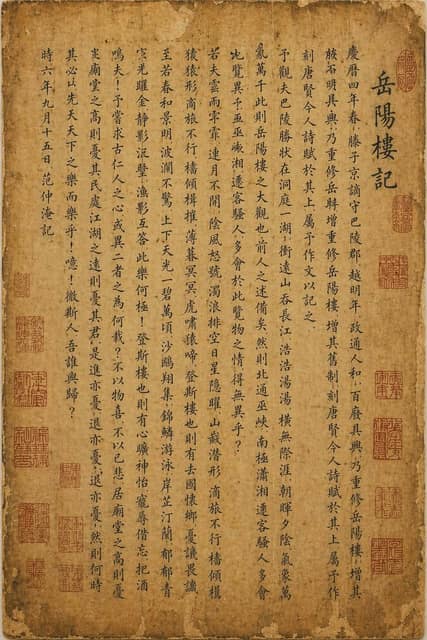 岳陽樓記
慶曆四年春，滕子京謫守巴陵郡，越明年，政通人和，百廢具興，乃重修岳陽樓，增其
明具興乃重修岳增重修岳陽樓，增其舊制刻唐賢今人詩賦於其上屬予作
刻唐賢今人詩賦於其上屬予作文以記之
予觀夫巴陵勝狀在洞庭一湖，銜遠山吞長江浩浩湯湯橫無際涯朝暉夕陰氣象萬
氣萬千此則岳陽樓之大觀也前人之述備矣然則北通巫峽南極瀟湘遷客騷人多會
覽異千巫巫湘遷客騷人多會於此覽物之情得無異乎？
若夫雲雨霏霏連月不開陰風怒號濁浪排空日星隱曜山嶽潛形商旅不行檣傾楫
猿猿形商旅不行檣傾楫摧薄暮冥冥虎嘯猿啼登斯樓也則有去國懷鄉憂讒畏譏
至若春和景明波瀾不驚上下天光一碧萬頃沙鷗翔集錦鱗游泳岸芷汀蘭郁郁青
光曜金靜影沉璧漁影互答此樂何極！登斯樓也則有心曠神怡寵辱偕忘把酒
嗚夫！予嘗求古仁人之心或異二者之為何哉？不以物喜不以己悲居廟堂之高則憂
廟堂之高則憂其民處江湖之遠則憂其君，是進亦憂，退亦憂，退亦憂，然則何時
其必以先天天下之樂而樂乎！噫！微斯人吾誰與歸？
時六年九月十五日，范仲淹記